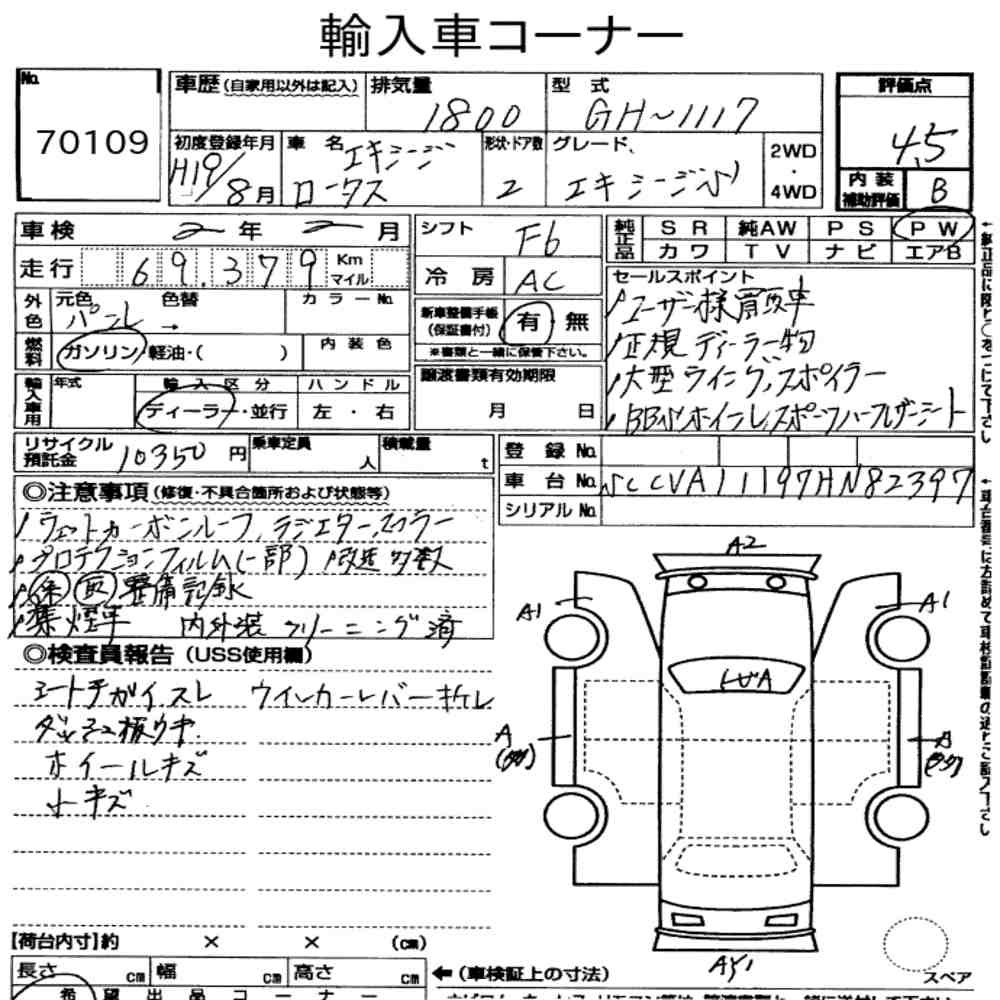 輸入車コーナー
No. 70109
車歴(自家用以外は記入) 排気量 1800 型式 GH-1117
評価点 4.5
内装補助評価 B
初度登録年月 H19/8月 車名 ロータス エキシージ 形状・ドア数 2 グレード エキシージS 2WD・4WD
車検 2年2月
走行 69,379 Km マイル
外色 元色 パール 色替 → カラーNo.
燃料 ガソリン・軽油・( ) 内装色
輸入車用 年式 輸入区分 ディーラー・並行 ハンドル 左・右
リサイクル預託金 10350円 乗車定員 人 積載量 t
シフト F6
冷房 AC
新車整備手帳(保証書付) 有・無
※書類と一緒に保管下さい。
譲渡書類有効期限
月 日
純正品 SR 純AW PS PW
カワ TV ナビ エアB
セールスポイント
ユーザー様買取車
正規ディーラー物
大型ウイング,スポイラー
登録No.
車台No. SCCVA11197HN82397
シリアルNo.
◎注意事項(修復・不具合箇所および状態等)
ウェットカーボンルーフ,ラジエター,マフラー
プロテクションフィルム(一部) 改造多数
保 取 整備記録
禁煙車 内外装クリーニング済
◎検査員報告(USS使用欄)
シートチガイ,スレ ウインカーレバーキレ
ダッシュ板ウキ
ホイールキズ
小キズ
A2
A1
A1
A
A
AY1
スペア
【荷台内寸】約 × × (cm)
長さ cm 幅 cm 高さ cm
←(車検証上の寸法)
希望出品コーナー